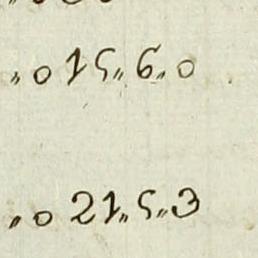 „ 0 15 „ 6 „ 0
„ 0 21 „ 5 „ 3